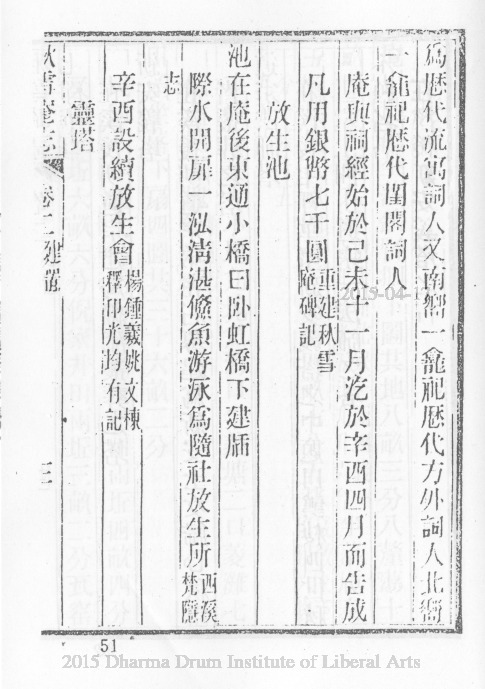 爲歷代流寓詞人又南嚮一龕祀歷代方外詞人北嚮
一龕祀歷代閨閣詞人
庵與祠經始於己未十一月汔於辛酉四月而告成
凡用銀幣七千圓重建秋雪庵碑記
放生池
池在庵後東通小橋曰臥虹橋下建牐
際水開扉一泓淸湛鯈魚游泳爲隨社放生所西溪梵隱
志
辛酉設續放生會楊鍾羲姚文棟釋印光均有記
靈塔
秋雪庵志 卷二建置 三
51
2015-04-1
2015 Dharma Drum Institute of Liberal Arts